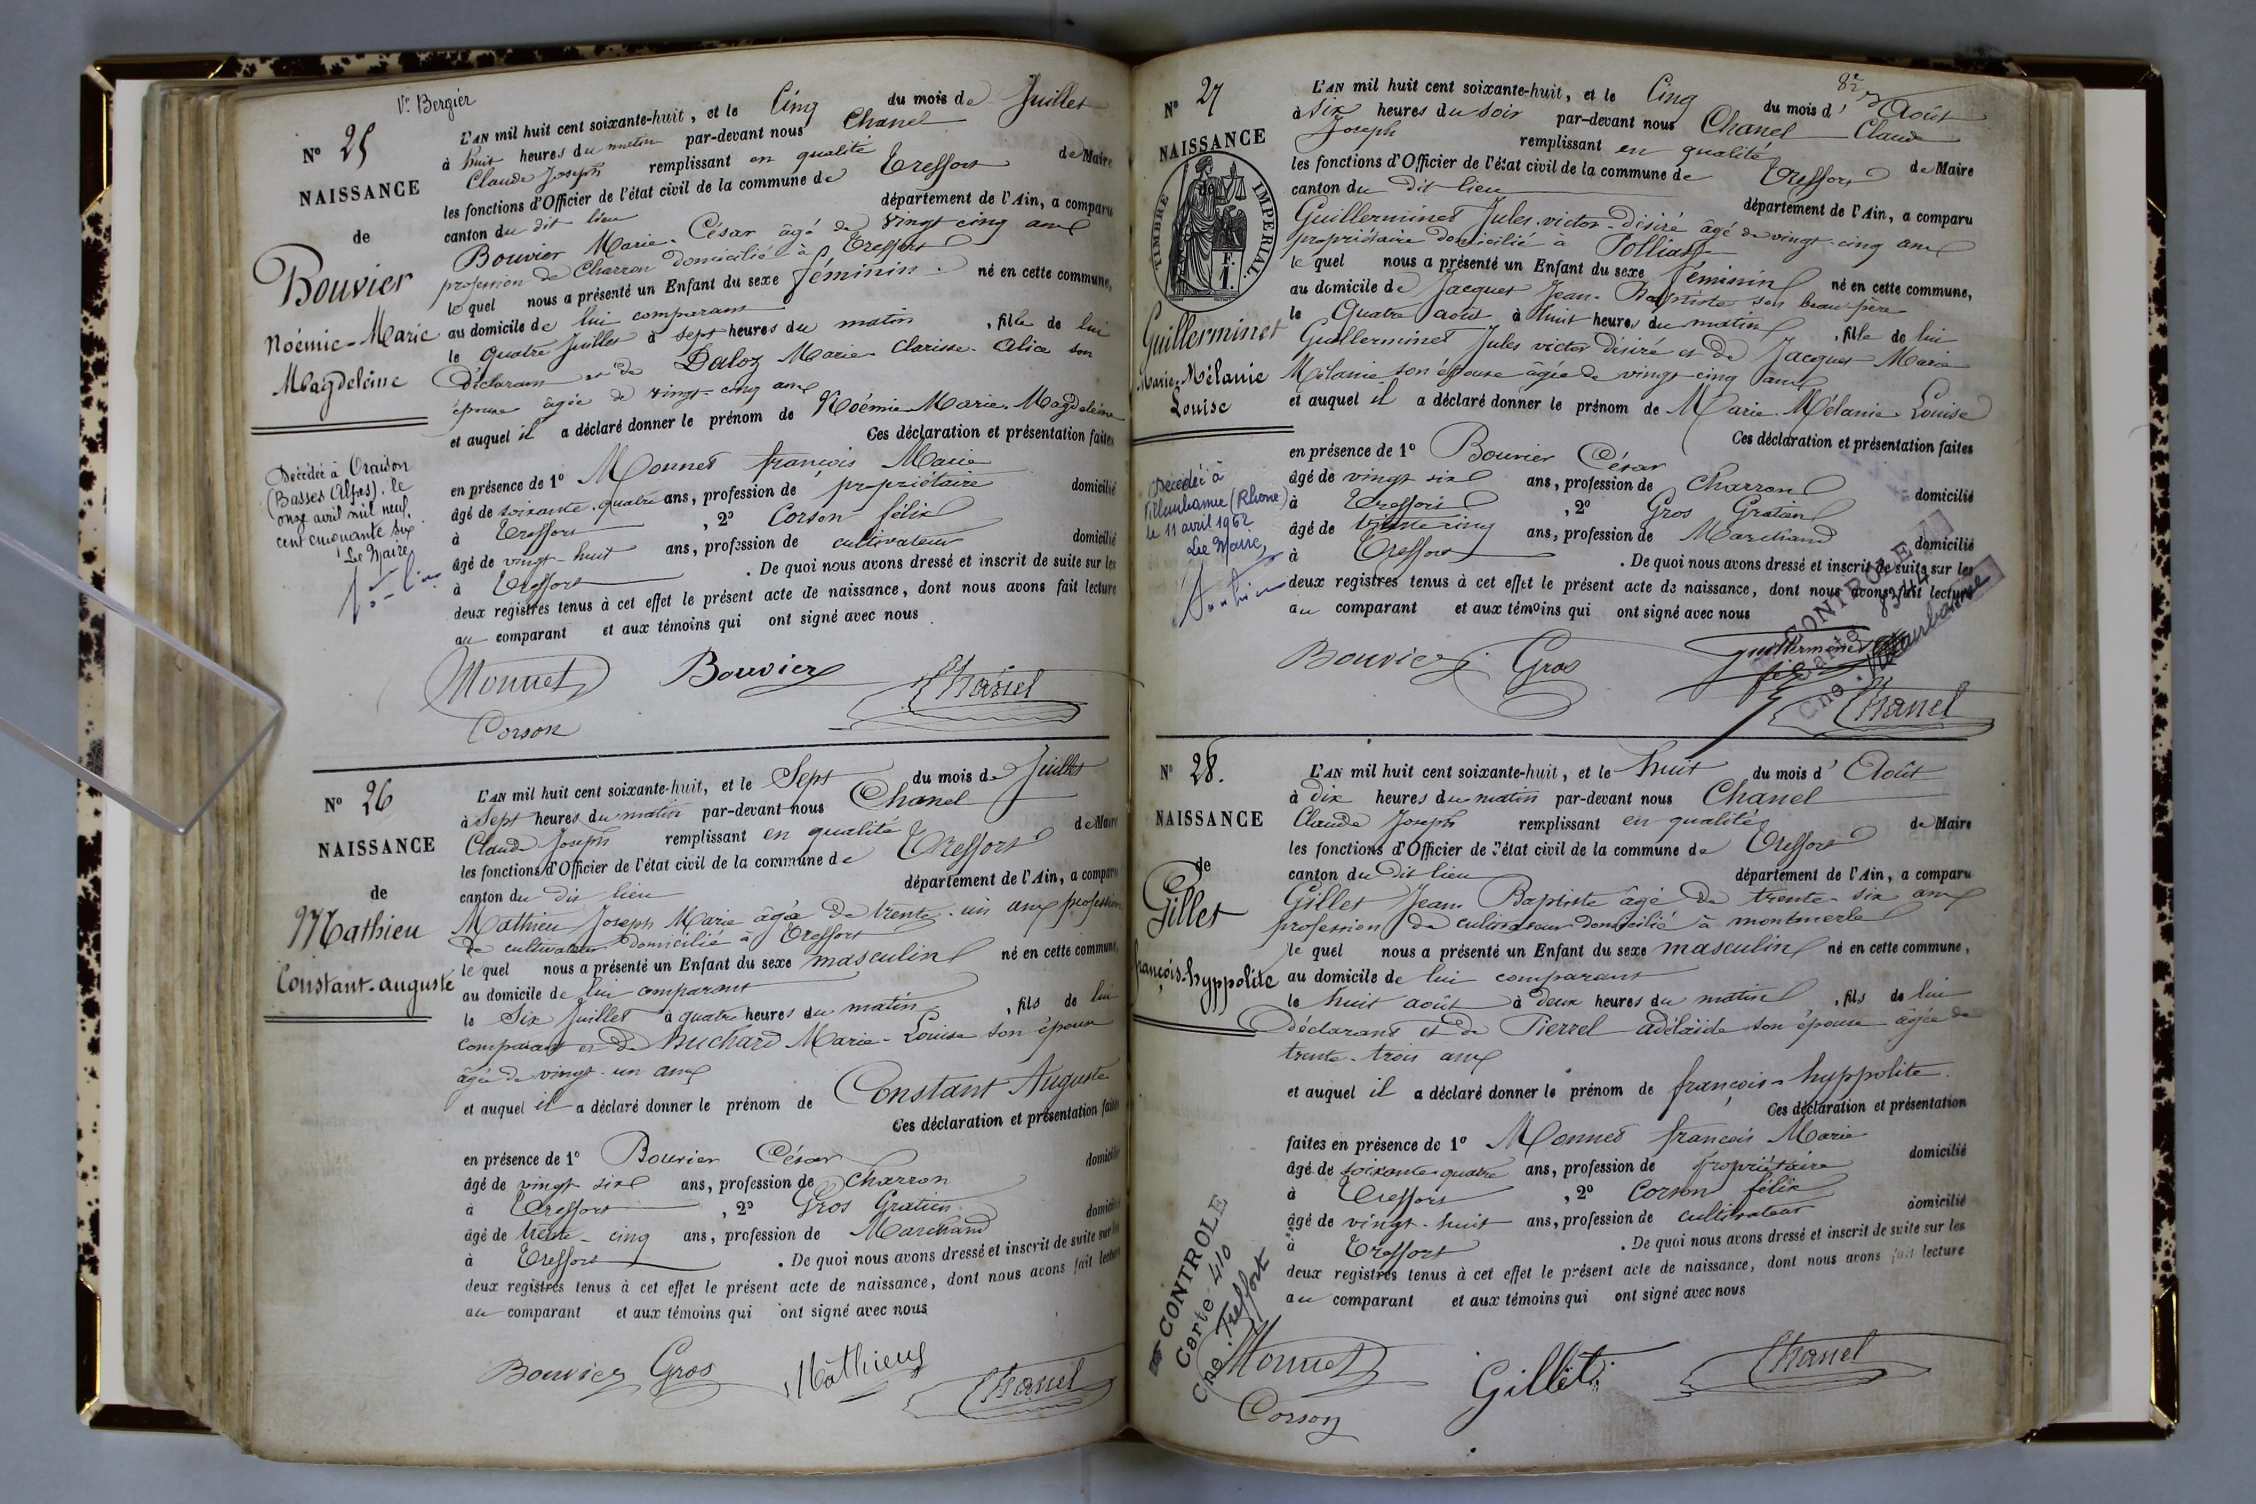 Vve Bergier
N° 25
NAISSANCE
de
Bouvier
Noémie-Marie
Magdeleine
Décédée à Oraison
(Basses Alpes), le
onze avril mil neuf
cent cinquante six
Le Maire
L'AN mil huit cent soixante-huit, et le Cinq du mois de Juillet
à huit heures du matin par-devant nous Chanel
Claude Joseph remplissant en qualité de Maire
les fonctions d'Officier de l'état civil de la commune de Treffort
canton du dit lieu département de l'Ain, a comparu
Bouvier Marie-César âgé de vingt cinq ans
profession de Charron domicilié à Treffort
lequel nous a présenté un Enfant du sexe féminin né en cette commune,
au domicile de lui comparant
le quatre Juillet à sept heures du matin, fille de lui
déclarant et de Daloz Marie-Clarisse-Alice son
épouse âgée de vingt-cinq ans
et auquel il a déclaré donner le prénom de Noémie-Marie-Magdeleine
Ces déclaration et présentation faites
en présence de 1° Monnet françois Marie
âgé de soixante-quatre ans, profession de propriétaire domicilié
à Treffort, 2° Corson félix
âgé de vingt-huit ans, profession de cultivateur domicilié
à Treffort. De quoi nous avons dressé et inscrit de suite sur les
deux registres tenus à cet effet le présent acte de naissance, dont nous avons fait lecture
au comparant et aux témoins qui ont signé avec nous
Monnet Bouvier Chanel
Corson
N° 26
NAISSANCE
de
Mathieu
Constant-auguste
L'AN mil huit cent soixante-huit, et le Sept du mois de Juillet
à Sept heures du matin par-devant nous Chanel
Claude Joseph remplissant en qualité de Maire
les fonctions d'Officier de l'état civil de la commune de Treffort
canton du dit lieu département de l'Ain, a comparu
Mathieu Joseph Marie âgé de trente-un ans profession
de cultivateur domicilié à Treffort
lequel nous a présenté un Enfant du sexe masculin né en cette commune,
au domicile de lui comparant
le Six Juillet à quatre heures du matin, fils de lui
comparant et de Marie-Louise son épouse
âgée de vingt-un ans
et auquel il a déclaré donner le prénom de Constant Auguste
Ces déclaration et présentation faites
en présence de 1° Bouvier César
âgé de vingt six ans, profession de Charron domicilié
à Treffort, 2° Gros Gratien
âgé de trente-cinq ans, profession de Marchand domicilié
à Treffort. De quoi nous avons dressé et inscrit de suite sur les
deux registres tenus à cet effet le présent acte de naissance, dont nous avons fait lecture
au comparant et aux témoins qui ont signé avec nous
Bouvier Gros Mathieu Chanel
N° 27
NAISSANCE
de
TIMBRE IMPERIAL
F.
1.
Guillerminet
Marie-Mélanie
Louise
Décédée à
Villeurbanne (Rhône)
le 11 avril 1962
Le Maire,
L'AN mil huit cent soixante-huit, et le Cinq du mois d'Août
à six heures du soir par-devant nous Chanel Claude
Joseph remplissant en qualité de Maire
les fonctions d'Officier de l'état civil de la commune de Treffort
canton du dit lieu département de l'Ain, a comparu
Guillerminet Jules-victor-désiré âgé de vingt-cinq ans
propriétaire domicilié à Polliat
lequel nous a présenté un Enfant du sexe féminin né en cette commune,
au domicile de Jacquet Jean-Baptiste son beau-père
le Quatre août à huit heures du matin, fille de lui
Guillerminet Jules victor désiré et de Jacquet Marie
Mélanie son épouse âgée de vingt-cinq ans
et auquel il a déclaré donner le prénom de Marie-Mélanie-Louise
Ces déclaration et présentation faites
en présence de 1° Bouvier César
âgé de vingt six ans, profession de Charron domicilié
à Treffort, 2° Gros Gratien
âgé de trente cinq ans, profession de Marchand domicilié
à Treffort. De quoi nous avons dressé et inscrit de suite sur les
deux registres tenus à cet effet le présent acte de naissance, dont nous avons fait lecture
au comparant et aux témoins qui ont signé avec nous
CONTROLE
Carte
Cne. Villeurbanne
Bouvier Gros Guillerminet
Chanel
N° 28.
NAISSANCE
de
Gillet
françois-hyppolite
L'AN mil huit cent soixante-huit, et le huit du mois d'Août
à dix heures du matin par-devant nous Chanel
Claude Joseph remplissant en qualité de Maire
les fonctions d'Officier de l'état civil de la commune de Treffort
canton du dit lieu département de l'Ain, a comparu
Gillet Jean Baptiste âgé de trente-six ans
profession de cultivateur domicilié à montmerle
lequel nous a présenté un Enfant du sexe masculin né en cette commune,
au domicile de lui comparant
le huit août à deux heures du matin, fils de lui
déclarant et de Pierrel adélaïde son épouse âgée de
trente-trois ans
et auquel il a déclaré donner le prénom de françois-hyppolite.
Ces déclaration et présentation
faites en présence de 1° Monnet françois Marie
âgé de soixante-quatre ans, profession de propriétaire domicilié
à Treffort, 2° Corson félix
âgé de vingt-huit ans, profession de cultivateur domicilié
à Treffort. De quoi nous avons dressé et inscrit de suite sur les
deux registres tenus à cet effet le présent acte de naissance, dont nous avons fait lecture
au comparant et aux témoins qui ont signé avec nous
CONTROLE
Carte 410
Cne. Treffort
Monnet Gillet Chanel
Corson